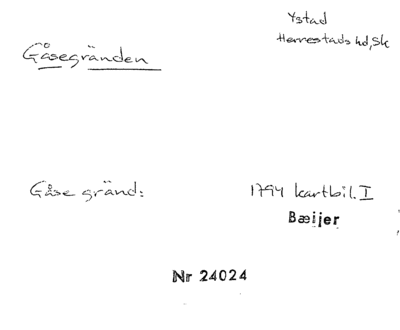 Ystad
Herrestads hd, Sk
Gåsegränden
Gåse gränd: 1794 kartbil. I
Bæijer
Nr 24024